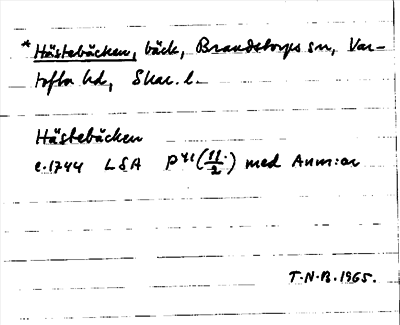 *Hästebäcken, bäck, Brandstorps sn, Var-
tofta hd, Skar. l.
Hästebäcken
c. 1744 LSA P41 (11/2) med Anm:ar
T.N.B. 1965.